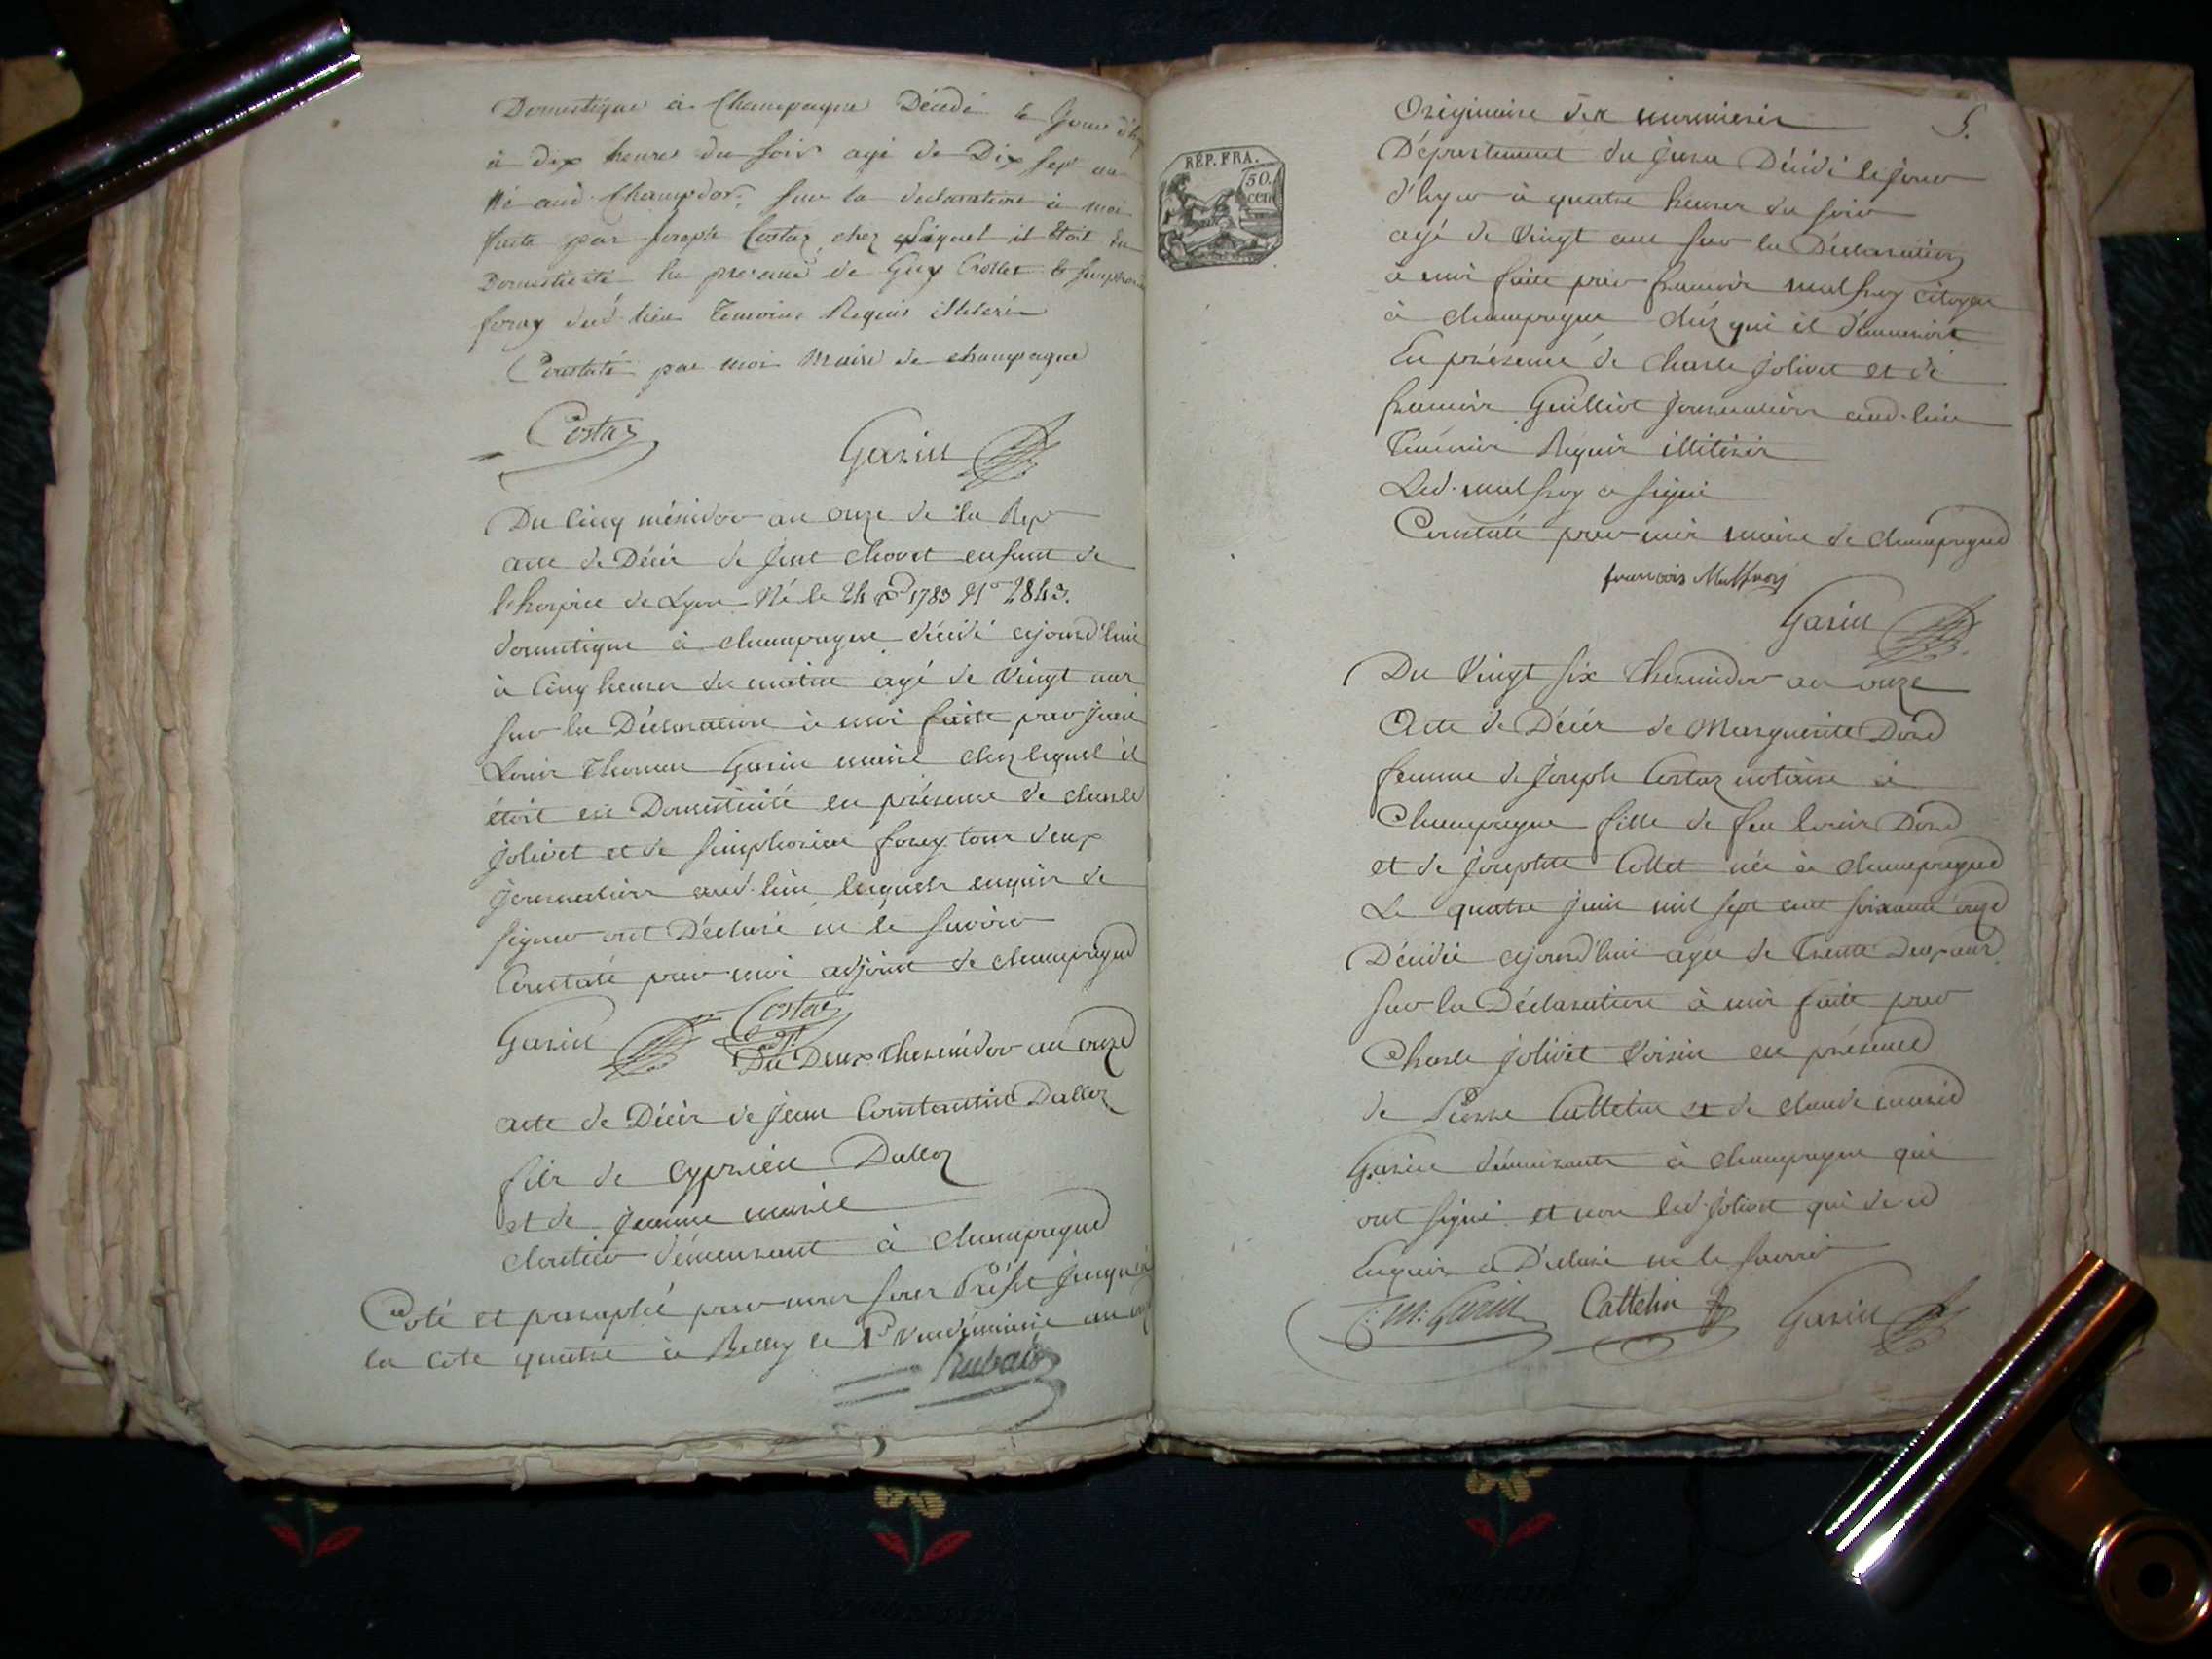 Domestique à Champagne Décédé le Jour d'hy
à dix heures du soir agé de Dix sept an
Né aud. Champdor, sur la declaration à moi
faite par Joseph Costaz chez lequel il étoit en
Domesticité la presence de Guy Collet & simphorien
foray dud. lieu Temoins Requis illiterés
Constaté par moi Maire de champagne
Costaz
Garin
Du Cinq méssidor an onze de la Rep
acte de Décés de chovet enfant de
l'hospice de Lyon Né le 24 1783 N° 2843.
domestique à champagne décédé cejourd'hui
à Cinq heures du matin agé de Vingt ans
sur la Déclaration à moi faite par jean
Louis Thomas Garin maire chez lequel il
étoit en Domesticité en présence de charle
jolivet et de simphorien foray tous deux
journaliers aud. lieu, lesquels enquis de
signer ont Déclaré ne le savoir
Constaté par moi adjoint de champagne
Garin Costaz
adjt
Du Deux thermidor an onze
acte de Décés de jean Constantin Dalloz
fils de cyprien Dalloz
et de jeanne marie
cloutier démeurant à champagne
Coté et paraphé par nous sous Préfet jusqu'à
la cote quatre à Belley le 1er Vendémiaire an
Rubat
5.
RÉP. FRA.
50.
cen
Originaire des
Département du jura Décédé le jour
d'hyer à quatre heures du soir
agé de Vingt ans sur la Déclaration
à moi faite par francois malfroy citoyen
à champagne chéz qui il démeuroit
En présence de charle jolivet et de
francois Guilliot journaliers aud. lieu
Témoins Réquis illitérés
Led. malfroy a signé
Constaté par moi maire de champagne
francois Malfroy
Garin
Du Vingt six thermidor an onze
Acte de Décés de Marguerite Dord
femme de Joseph Costaz notaire à
Champagne fille de feu Louis Dord
et de josephte Collet née à champagne
Le quatre juin mil sept cent soixante onze
Décédée cejourd'hui agée de Trente Deux ans
sur la Déclaration à moi faite par
Charle jolivet Voisin en présence
de Pierre Cattelin et de claude marie
Garin démeurants à champagne qui
ont signé et non led. jolivet qui de ce
Enquis a Déclaré ne le savoir
C: M: Garin Cattelin Garin